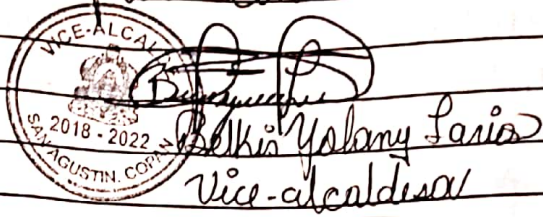 VICE-ALCAL
2018 - 2022
SAN AGUSTIN. COPAN
Belkis Yolany Larios
Vice-alcaldesa